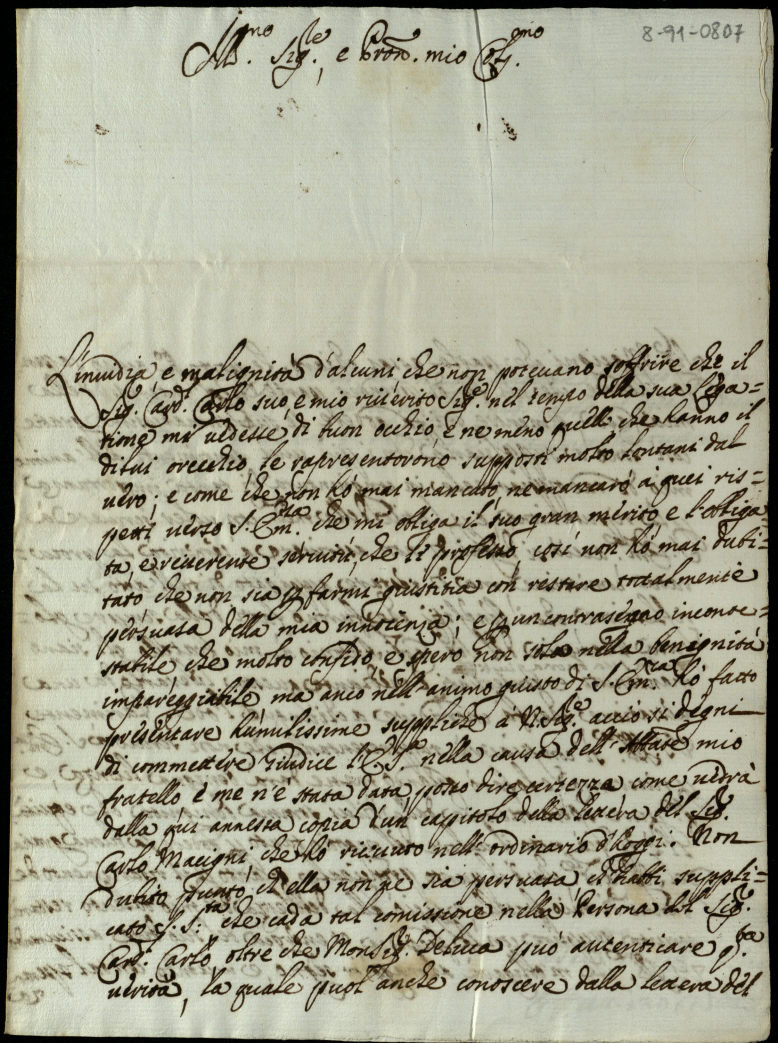 8-91-0807
Ill.mo Sig.re, e Pron. mio Oss.mo
L'inuidia, e malignità d'alcuni che non poteuano soffrire che il
Sig. Card. Carlo suo, e mio riuerito Sig.re nel tempo della sua Lega=
tione mi uedesse di buon occhio è ne meno quelli che hanno il
di lui orecchio, le rapresentorono supposti molto lontani dal
uero; e come che non hò mai mancato, ne mancarò à quei ris=
petti uerso S. Em.za che mi obliga il suo gran merito, e l'obliga=
ta, e riuerente seruitù, che li professo, così non hò mai dubi=
tato che non sia p farmi giustitia con restare totalmente
persuasa della mia innocenza; e p un contrasegno inconte=
stabile che molto confido, e spero non solo nella benignità
impareggiabile ma anco nell'animo giusto di S. Em.za hò fatto
presentare humilissime suppliche à N. Sig.re acciò si degni
di commettere Giudice l'E. S.a nella causa dell'Abbate mio
fratello è me n'è stata data posso dire certezza come uedrà
dalla qui annessa copia d'un capitolo della lettera del Sig.
Carlo Macigni che hò riceuuto nell'ordinario d'hoggi. Non
dubito punto, ch'ella non ne sia persuasa, ch'habbi suppli=
cato S. S.tà che cada tal comissione nella Persona del Sig.
Card. Carlo oltre che Monsig. Deluca può autenticare q.sta
uerità, la quale puol anche conoscere dalla lettera del